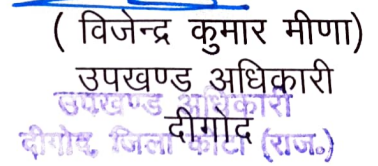 ( विजेन्द्र कुमार मीणा)
उपखण्ड अधिकारी
उपखण्ड अधिकारी
दीगोद
दीगोद, जिला कोटा (राज०)